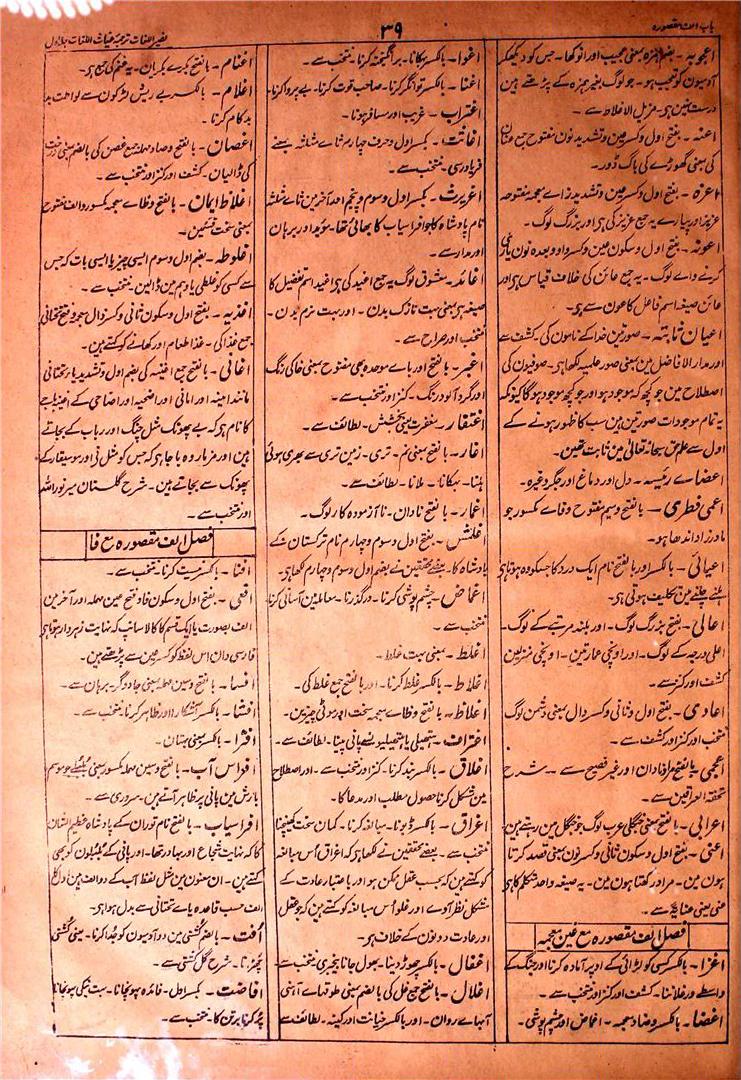 باب الف مقصورہ
۳۹
نصیر اللغات ترجمۂ غیاث اللغات جلد اول
اعجوبہ ۔ بضم ہمزہ بمعنی عجیب اور انوکھا ۔ جس کو دیکھکر
آدمیون کو تعجب ہو ۔ جو لوگ بغیر ہمزہ کے پڑھتے ہین
درست نہین ہی ۔ مزیل الاغلاط سے ۔
اعنہ ۔ بفتح اول و کسر عین و تشدید نون مفتوح جمع عنان
کی بمعنی گھوڑے کی باگ ڈور ۔
اعزہ ۔ بفتح اول و کسر عین و تشدید زاے معجمہ مفتوحہ
عزیز اور پیارے یہ جمع عزیز کی ہی اور بزرگ لوگ ۔
اعونہ ۔ بفتح اول و سکون عین و کسر واو و بعدہ نون یاری
کرنے والے لوگ ۔ یہ جمع عائن کی خلاف قیاس ہی اور
عائن صیغہ اسم فاعل کا عون سے ہو ۔
اعیان ثابتہ ۔ صورتین خدا کے نامون کی ۔ کشف سے
اور مدار الافاضل مین بمعنی صور علمیہ لکھا ہی ۔ صوفیون کی
اصطلاح مین جو کچھ کہ موجود ہو اور جو کچھ موجود ہوگا کیونکہ
یہ تمام موجودات صورتین ہین سب کا ظہور ہونے کے
اول سے علم حق سبحانہ تعالیٰ مین ثابت تھین ۔
اعضاے رئیسہ ۔ دل اور دماغ اور جگر وغیرہ ۔
اعمی فطری ۔ بالفتح و میم مفتوح و فاے مکسور جو
مادرزاد اندھا ہو ۔
اعیائی ۔ بالکسر اور بالفتح نام ایک درد کا جسکو وہ ہوتا ہی
ہلنے چلنے مین تکلیف ہوتی ہی ۔
اعالی ۔ بفتح بزرگ لوگ ۔ اور بلند مرتبے کے لوگ ۔
اعلی درجہ کے لوگ ۔ اور اونچی عمارتین ۔ اونچی منزلین
کشف اور کنز سے ۔
اعادی ۔ بفتح اول و ثانی و کسر دال بمعنی دشمن لوگ
منتخب اور کنز اور کشف سے ۔
اعجمی ۔ بالفتح مراد نادان اور غیر فصیح سے ۔ شرح
تحفۃ العراقین سے ۔
اعرابی ۔ بالفتح بمعنی جنگلی عرب لوگ جو جنگل مین رہتے ہین ۔
اعنی ۔ بفتح اول و سکون ثانی و کسر نون بمعنی قصد کرتا
ہون مین ۔ مراد رکھتا ہون مین ۔ یہ صیغہ واحد متکلم کا ہی
عنی یعنی عنایۃ سے ۔
فصل الف مقصورہ مع غین معجمہ
اغزا ۔ بالکسر کسی کو لڑائی کے اوپر آمادہ کرنا اور جنگ کے
واسطے ورغلانا ۔ کشف اور کنز اور منتخب سے ۔
اغضا ۔ بالکسر و ضاد معجمہ ۔ اغماض اور چشم پوشی ۔
اغوا ۔ بالکسر بہکانا ۔ برانگیختہ کرنا ۔ منتخب سے ۔
اغنا ۔ بالکسر تونگر کرنا ۔ صاحب قوت کرنا ۔ بے پروا کرنا ۔
اغتراب ۔ غریب اور مسافر ہونا ۔
اغاثت ۔ بکسر اول و حرف چہارم ثاے مثلثہ بمعنے
فریادرسی ۔ منتخب سے ۔
اغریرث ۔ بکسر اول و سوم و پنجم اور آخر مین ثاے مثلثہ
نام بادشاہ کا جو افراسیاب کا بھائی تھا ۔ مؤید اور برہان
اور مدار سے ۔
اغائد ۔ معشوق لوگ یہ جمع اغید کی ہی اغید اسم تفضیل کا
صیغہ ہی بمعنی بہت نازک بدن ۔ اور بہت نرم بدن ۔
منتخب اور صراح سے ۔
اغبر ۔ بالفتح اور باے موحدہ بھی مفتوح بمعنی خاکی رنگ
اور گرد آلود رنگ ۔ کنز اور منتخب سے ۔
اغتفار ۔ مغفرت بمعنی بخشش ۔ لطائف سے ۔
اغار ۔ بالفتح بمعنی نم ۔ تری ۔ زمین تری سے بھری ہوئی
ہلنا ۔ بہکانا ۔ ملانا ۔ لطائف سے ۔
اغمار ۔ بالفتح نادان ۔ نا آزمودہ کار لوگ ۔
اغلنش ۔ بفتح اول و سوم و چہارم نام ترکستان کے
بادشاہ کا ۔ بعضے محققین نے بضم اول و سوم و چہارم لکھا ہی ۔
اغماض ۔ چشم پوشی کرنا ۔ درگذرنا ۔ معاملہ مین آسانی کرنا ۔
منتخب سے ۔
اغلط ۔ بمعنی بہت غلط ۔
اغلاط ۔ بالکسر غلط کرنا ۔ اور بالفتح جمع غلط کی ۔
اغلاظ ۔ بالفتح و ظاے معجمہ سخت اور موٹی چیزین ۔
اغتراف ۔ ہتھیلی یا ہتھیلیون سے پانی پینا ۔ لطائف سے ۔
اغلاق ۔ بالکسر بند کرنا ۔ کنز اور منتخب سے ۔ اور اصطلاح
مین مشکل کرنا حصول مطلب اور مدعا کا ۔
اغراق ۔ بالکسر ڈبونا ۔ مبالغہ کرنا ۔ کمان سخت کھینچنا
منتخب سے ۔ بعضے محققین نے لکھا ہی کہ اغراق اُس مبالغہ
کو کہتے ہین کہ بحسب عقل ممکن ہو اور باعتبار عادت کے
مشکل نظر آوے ۔ اور غلو اُس مبالغہ کو کہتے ہین کہ جو عقل
اور عادت دونون کے خلاف ہو ۔
اغفال ۔ بالکسر چھوڑ دینا ۔ بھول جانا بیخبری منتخب سے
اغلال ۔ بالفتح جمع غل کی بالضم بمعنی طوقہاے آہنی
آبہاے روان ۔ اور بالکسر خیانت اور کینہ ۔ لطائف سے
اغنام ۔ بالفتح بکرے بکریان ۔ یہ غنم کی جمع ہی ۔
اغلام ۔ بالکسر بے ریش لڑکون سے لواطت بد
بدکام کرنا ۔
اغصان ۔ بالفتح و صاد مہملہ جمع غصن کی بالضم بمعنی درخت
کی ڈالیان ۔ کشف اور کنز اور منتخب سے ۔
اغلاظ ایمان ۔ بالفتح و ظاے معجمہ مکسور و الف مفتوح
بمعنی سخت قسمین ۔
اغلوطہ ۔ بضم اول و سوم ایسی چیز یا ایسی بات کہ جس
سے کسی کو غلطی یا وہم مین ڈالین ۔ منتخب سے ۔
اغذیہ ۔ بفتح اول و سکون ثانی و کسر ذال معجمہ و فتح تحتانی
جمع غذا کی ۔ غذا طعام اور کھانے کو کہتے ہین ۔
اغانی ۔ بالفتح جمع اغنیہ کی بضم اول و تشدید یاے تحتانی
مانند امنیہ اور امانی اور اضحیہ اور اضاحی کے اغنیہ باجے
کا نام ہی کہ بے پھونک مثل چنگ اور رباب کے بجاتے
ہین اور مزمار وہ باجا ہی کہ جس کو مثل نے اور موسیقار کے
پھونک سے بجاتے ہین ۔ شرح گلستان میر نور اللہ
اور منتخب سے ۔
فصل الف مقصورہ مع فا
افنا ۔ بالکسر نیست کرنا ۔ منتخب سے ۔
افعی ۔ بفتح اول و سکون فاو فتح عین مہملہ اور آخر مین
الف بصورت یا ایک قسم کا کالا سانپ کہ نہایت زہردار ہوتا ہی
فارسی دان اس لفظ کو کسر عین سے پڑھتے ہین ۔
افسا ۔ بالفتح و سین مہملہ بمعنی جادوگر ۔ برہان سے ۔
افشا ۔ بالکسر آشکارا اور ظاہر کرنا ۔ منتخب سے ۔
افترا ۔ بالکسر بمعنی بہتان ۔
افراس آب ۔ بالفتح و سین مہملہ مکسور بمعنی بلبلے جو موسم
بارش مین پانی پر ظاہر آتے ہین ۔ سروری سے ۔
افراسیاب ۔ بالفتح نام توران کے بادشاہ عظیم الشان
کا کہ نہایت شجاع اور بہادر تھا ۔ اور پانی کے بلبلون کو بھی
کہتے ہین ۔ ان معنون مین مثل لفظ آب کے دو الف ہین داخل
الف حسب قاعدہ یاے تحتانی سے بدل ہوا ہی ۔
اُفت ۔ بالضم کشتی مین دو آدمیون کو جدا کرنا ۔ یعنی کشتی
چھڑانا ۔ شرح گل کشتی سے ۔
افاضت ۔ بکسر اول ۔ فائدہ پہونچانا ۔ بہت نیکی پہونچانا
پُر کرنا برتن کا ۔ منتخب سے ۔